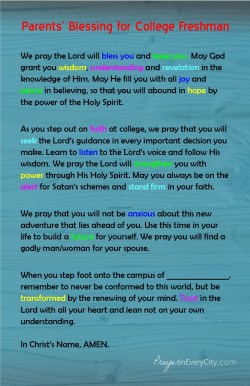 Parents' Blessing for College Freshman
We pray the Lord will bless you and keep you. May God
grant you wisdom, understanding and revelation in the
knowledge of Him. May He fill you with all joy and
peace in believing, so that you will abound in hope by
the power of the Holy Spirit.
As you step out on faith at college, we pray that you will
seek the Lord's guidance in every important decision you
make. Learn to listen to the Lord's voice and follow His
wisdom. We pray the Lord will strengthen you with
power through His Holy Spirit. May you always be on the
alert for Satan's schemes and stand firm in your faith.
We pray that you will not be anxious about this new
adventure that lies ahead of you. Use this time in your
life to build a for yourself. We pray you will find a
godly man/woman for your spouse.
When you step foot onto the campus of _______________,
remember to never be conformed to this world, but be
transformed by the renewing of your mind. Trust in the
Lord with all your heart and lean not on your own
understanding.
In Christ's Name, AMEN.
PrayerinEveryCity.com